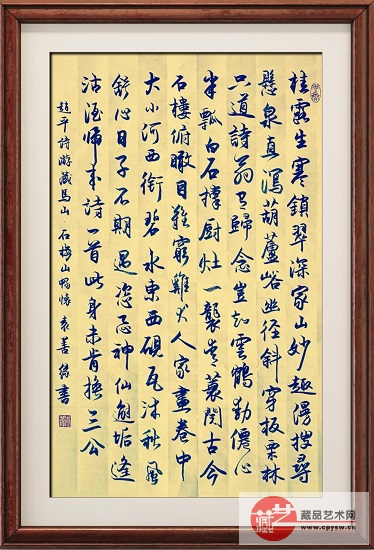 桂露生寒鎖翠深家山妙趣漫搜尋
懸泉直瀉葫蘆峪幽徑斜穿板栗林
只道詩翁有歸念豈知雲鶴動僊心
半瓢白石撐厨灶一襲青蓑閱古今
石樓俯瞰目難窮雞犬人家畫卷中
大小河西銜碧水東西硯瓦沐秋風
舒心日子不期遇恣神仙邂垢逢
沽酒師求詩一首此身未肯換三公
趙平詩游藏馬山 石梅山 袁善書
藏艺
藏品艺术网
www.cpysw.cn